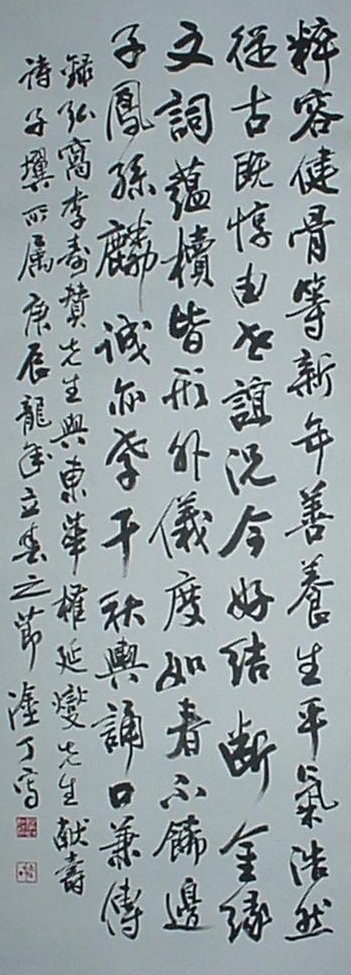 粹容健骨等新年善養生平氣浩然
從古既惇由世誼況今好結斷金緣
文詞蘊櫝皆形外儀度如春不飾邊
子鳳孫麟誠亦孝千秋輿誦口兼傳
錄弘窩李壽贊先生與東華權延燮先生献壽
詩子龔所属庚辰龍年立春之節 丁寫